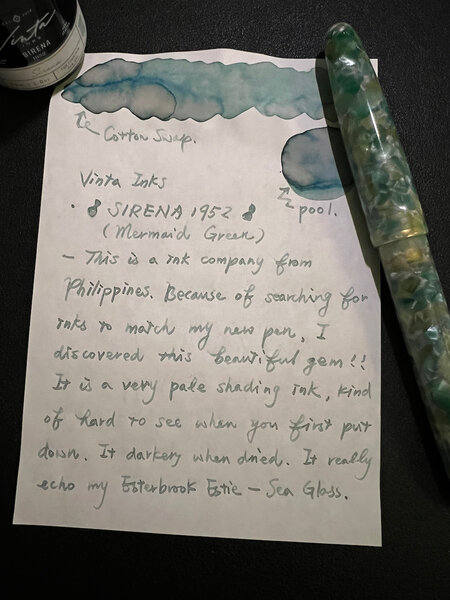 Vinta
INKS
SIRENA
1952
Cotton Swap.
pool.
Vinta Inks
• SIRENA 1952
(Mermaid Green)
- This is a ink company from
Philippines. Because of searching for
inks to match my new pen, I
discovered this beautiful gem!!
It is a very pale shading ink, kind
of hard to see when you first put
down. It darkery when dried. It really
echo my Esterbrook Estie - Sea Glass.